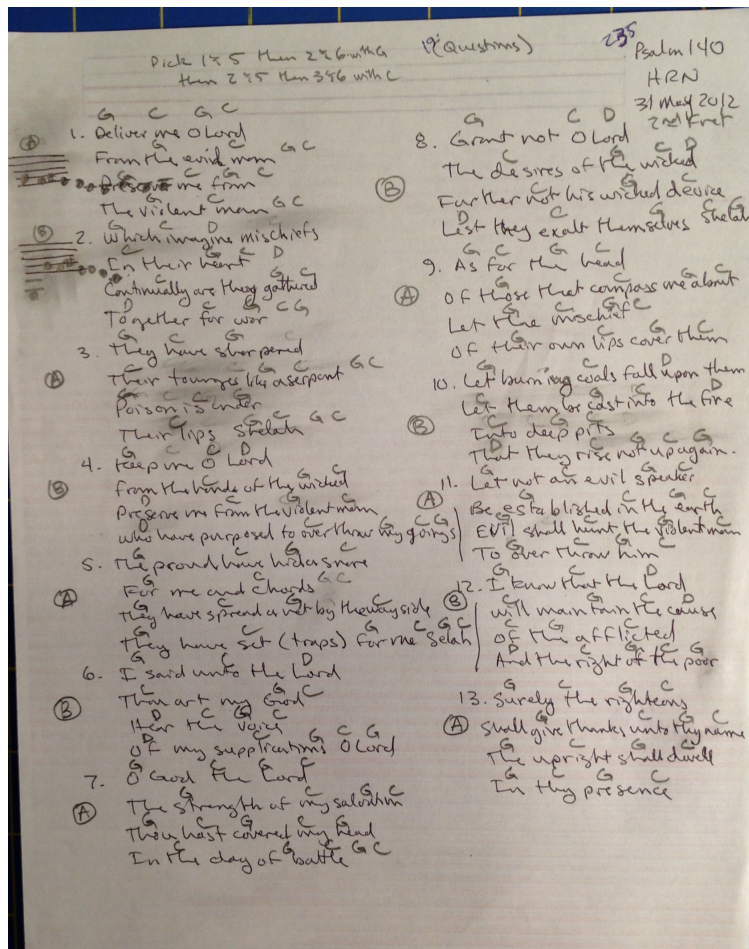 Pick 1 & 5 then 2 & 6 with G
then 2 & 5 then 3 & 6 with C
19 (Questions)
235
Psalm 140
HRN
31 May 2012
2nd Fret
G C G C
A 1. Deliver me O Lord
G G C
From the evil man
C G C
Preserve me from
G G C
The violent man
G C D
B 2. Which imagine mischiefs
C G C D
In their heart
C G C
Continually are they gathered
D C G C G
Together for war
G C G
3. They have sharpened
C G C G C
A Their tounges like a serpent
G C G
Poison is under
C G C G C
Their lips Shelah
G C D
4. Keep me O Lord
C G C
B From the hands of the wicked
D C G
Preserve me from the violent man
D C G C G
who have purposed to over throw my goings
G C G C
5. The proud have hid a snare
G C G C
A For me and Chords
G C G C
They have spread a net by the wayside
G C G C G C
They have set (traps) for me Selah
G C D
6. I said unto the Lord
C G C
B Thou art my God
D C G C
Hear the voice
D C G C G
Of my supplications O Lord
G C G C
7. O God the Lord
G C G C
A The strength of my salvation
G C G C G
Thou hast covered my head
G C G C
In the day of battle
G C D
8. Grant not O Lord
C G C D
The desires of the wicked
C G C
B Further not his wicked device
D C G C
Lest they exalt themselves Shelah
G C G C
9. As for the head
G C G C
A Of those that compass me about
G C G C
Let the mischief
G C G C
Of their own lips cover them
G C D
10. Let burning coals fall upon them
C G C D
Let them be cast into the fire
C G C
B Into deep pits
D C G C G
That they rise not up again.
G C G C
11. Let not an evil speaker
G C G C
A Be established in the earth
G C G C
Evil shall hunt the violent man
G C G C
To over throw him
G C D
12. I know that the Lord
C G C D
B will maintain the cause
C G C
Of the afflicted
D C G C G
And the right of the poor
G C G C
13. Surely the righteous
G C G C
A Shall give thanks unto thy name
G C G C
The upright shall dwell
G C G C
In thy presence